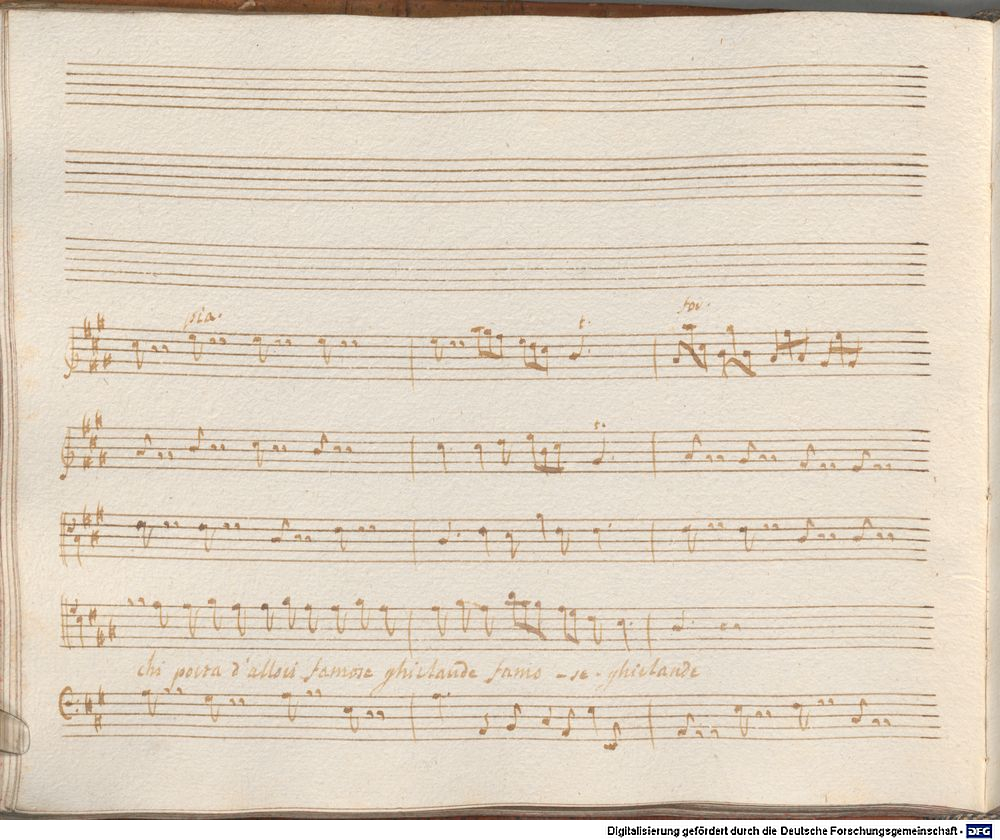 pia. for.
t.
t.
chi porta d'allori famose ghirlande famo - se - ghirlande
Digitalisierung gefördert durch die Deutsche Forschungsgemeinschaft - DFG